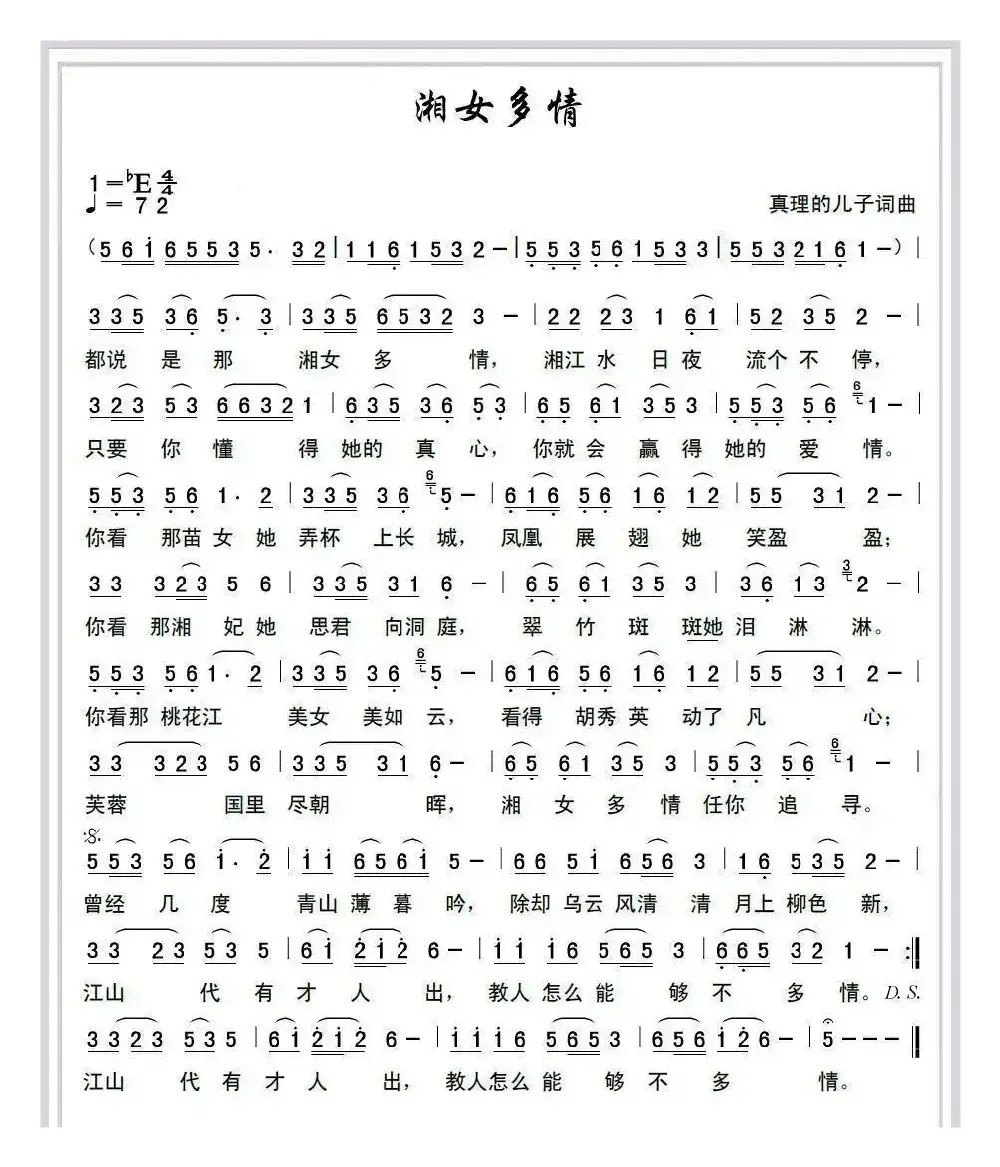 湘女多情
1=♭E 4/4
♩= 72
真理的儿子词曲
(5 6 i 6 5 5 3 5· 3 2 | 1 1 6 1 5 3 2 - | 5 5 3 5 6 1 5 3 3 | 5 5 3 2 1 6 1 - ) |
3 3 5 3 6 5· 3 | 3 3 5 6 5 3 2 3 - | 2 2 2 3 1 6 1 | 5 2 3 5 2 - |
都说 是 那 湘女 多 情, 湘江 水 日 夜 流个 不 停,
3 2 3 5 3 6 6 3 2 1 | 6 3 5 3 6 5 3 | 6 5 6 1 3 5 3 | 5 5 3 5 6 6 1 - |
只要 你 懂 得 她的 真 心, 你就 会 赢 得 她的 爱 情。
5 5 3 5 6 1· 2 | 3 3 5 3 6 6 5 - | 6 1 6 5 6 1 6 1 2 | 5 5 3 1 2 - |
你看 那苗 女 她 弄杯 上长 城, 凤凰 展 翅 她 笑盈 盈;
3 3 3 2 3 5 6 | 3 3 5 3 1 6 - | 6 5 6 1 3 5 3 | 3 6 1 3 3 2 - |
你看 那湘 妃 她 思君 向洞 庭, 翠 竹 斑 斑她 泪 淋 淋。
5 5 3 5 6 1· 2 | 3 3 5 3 6 6 5 - | 6 1 6 5 6 1 6 1 2 | 5 5 3 1 2 - |
你看那 桃花江 美女 美如 云, 看得 胡秀 英 动了 凡 心;
3 3 3 2 3 5 6 | 3 3 5 3 1 6 - | 6 5 6 1 3 5 3 | 5 5 3 5 6 6 1 - |
芙蓉 国里 尽朝 晖, 湘 女 多 情 任你 追 寻。
𝄋
5 5 3 5 6 i· 2 | i i 6 5 6 i 5 - | 6 6 5 i 6 5 6 3 | 1 6 5 3 5 2 - |
曾经 几 度 青山 薄 暮 吟, 除却 乌云 风清 清 月上 柳色 新,
3 3 2 3 5 3 5 | 6 i 2 i 2 6 - | i i i 6 5 6 5 3 | 6 6 5 3 2 1 - :‖
江山 代 有 才 人 出, 教人 怎么 能 够 不 多 情。D. S.
3 3 2 3 5 3 5 | 6 i 2 i 2 6 - | i i i 6 5 6 5 3 | 6 5 6 i 2 6 - | 5 - - - ‖
江山 代 有 才 人 出, 教人怎么 能 够 不 多 情。